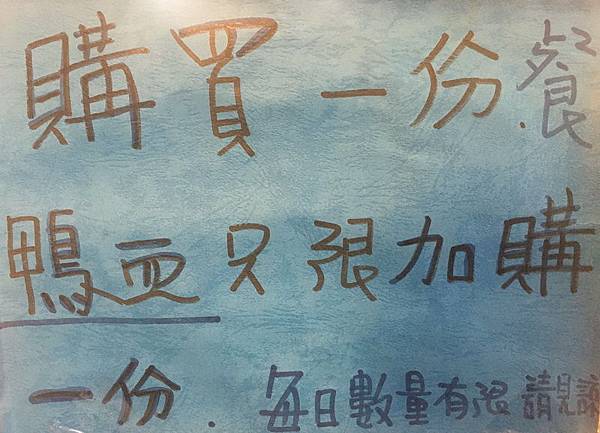 購買一份.餐
鴨血只限加購
一份.每日數量有限 請見諒